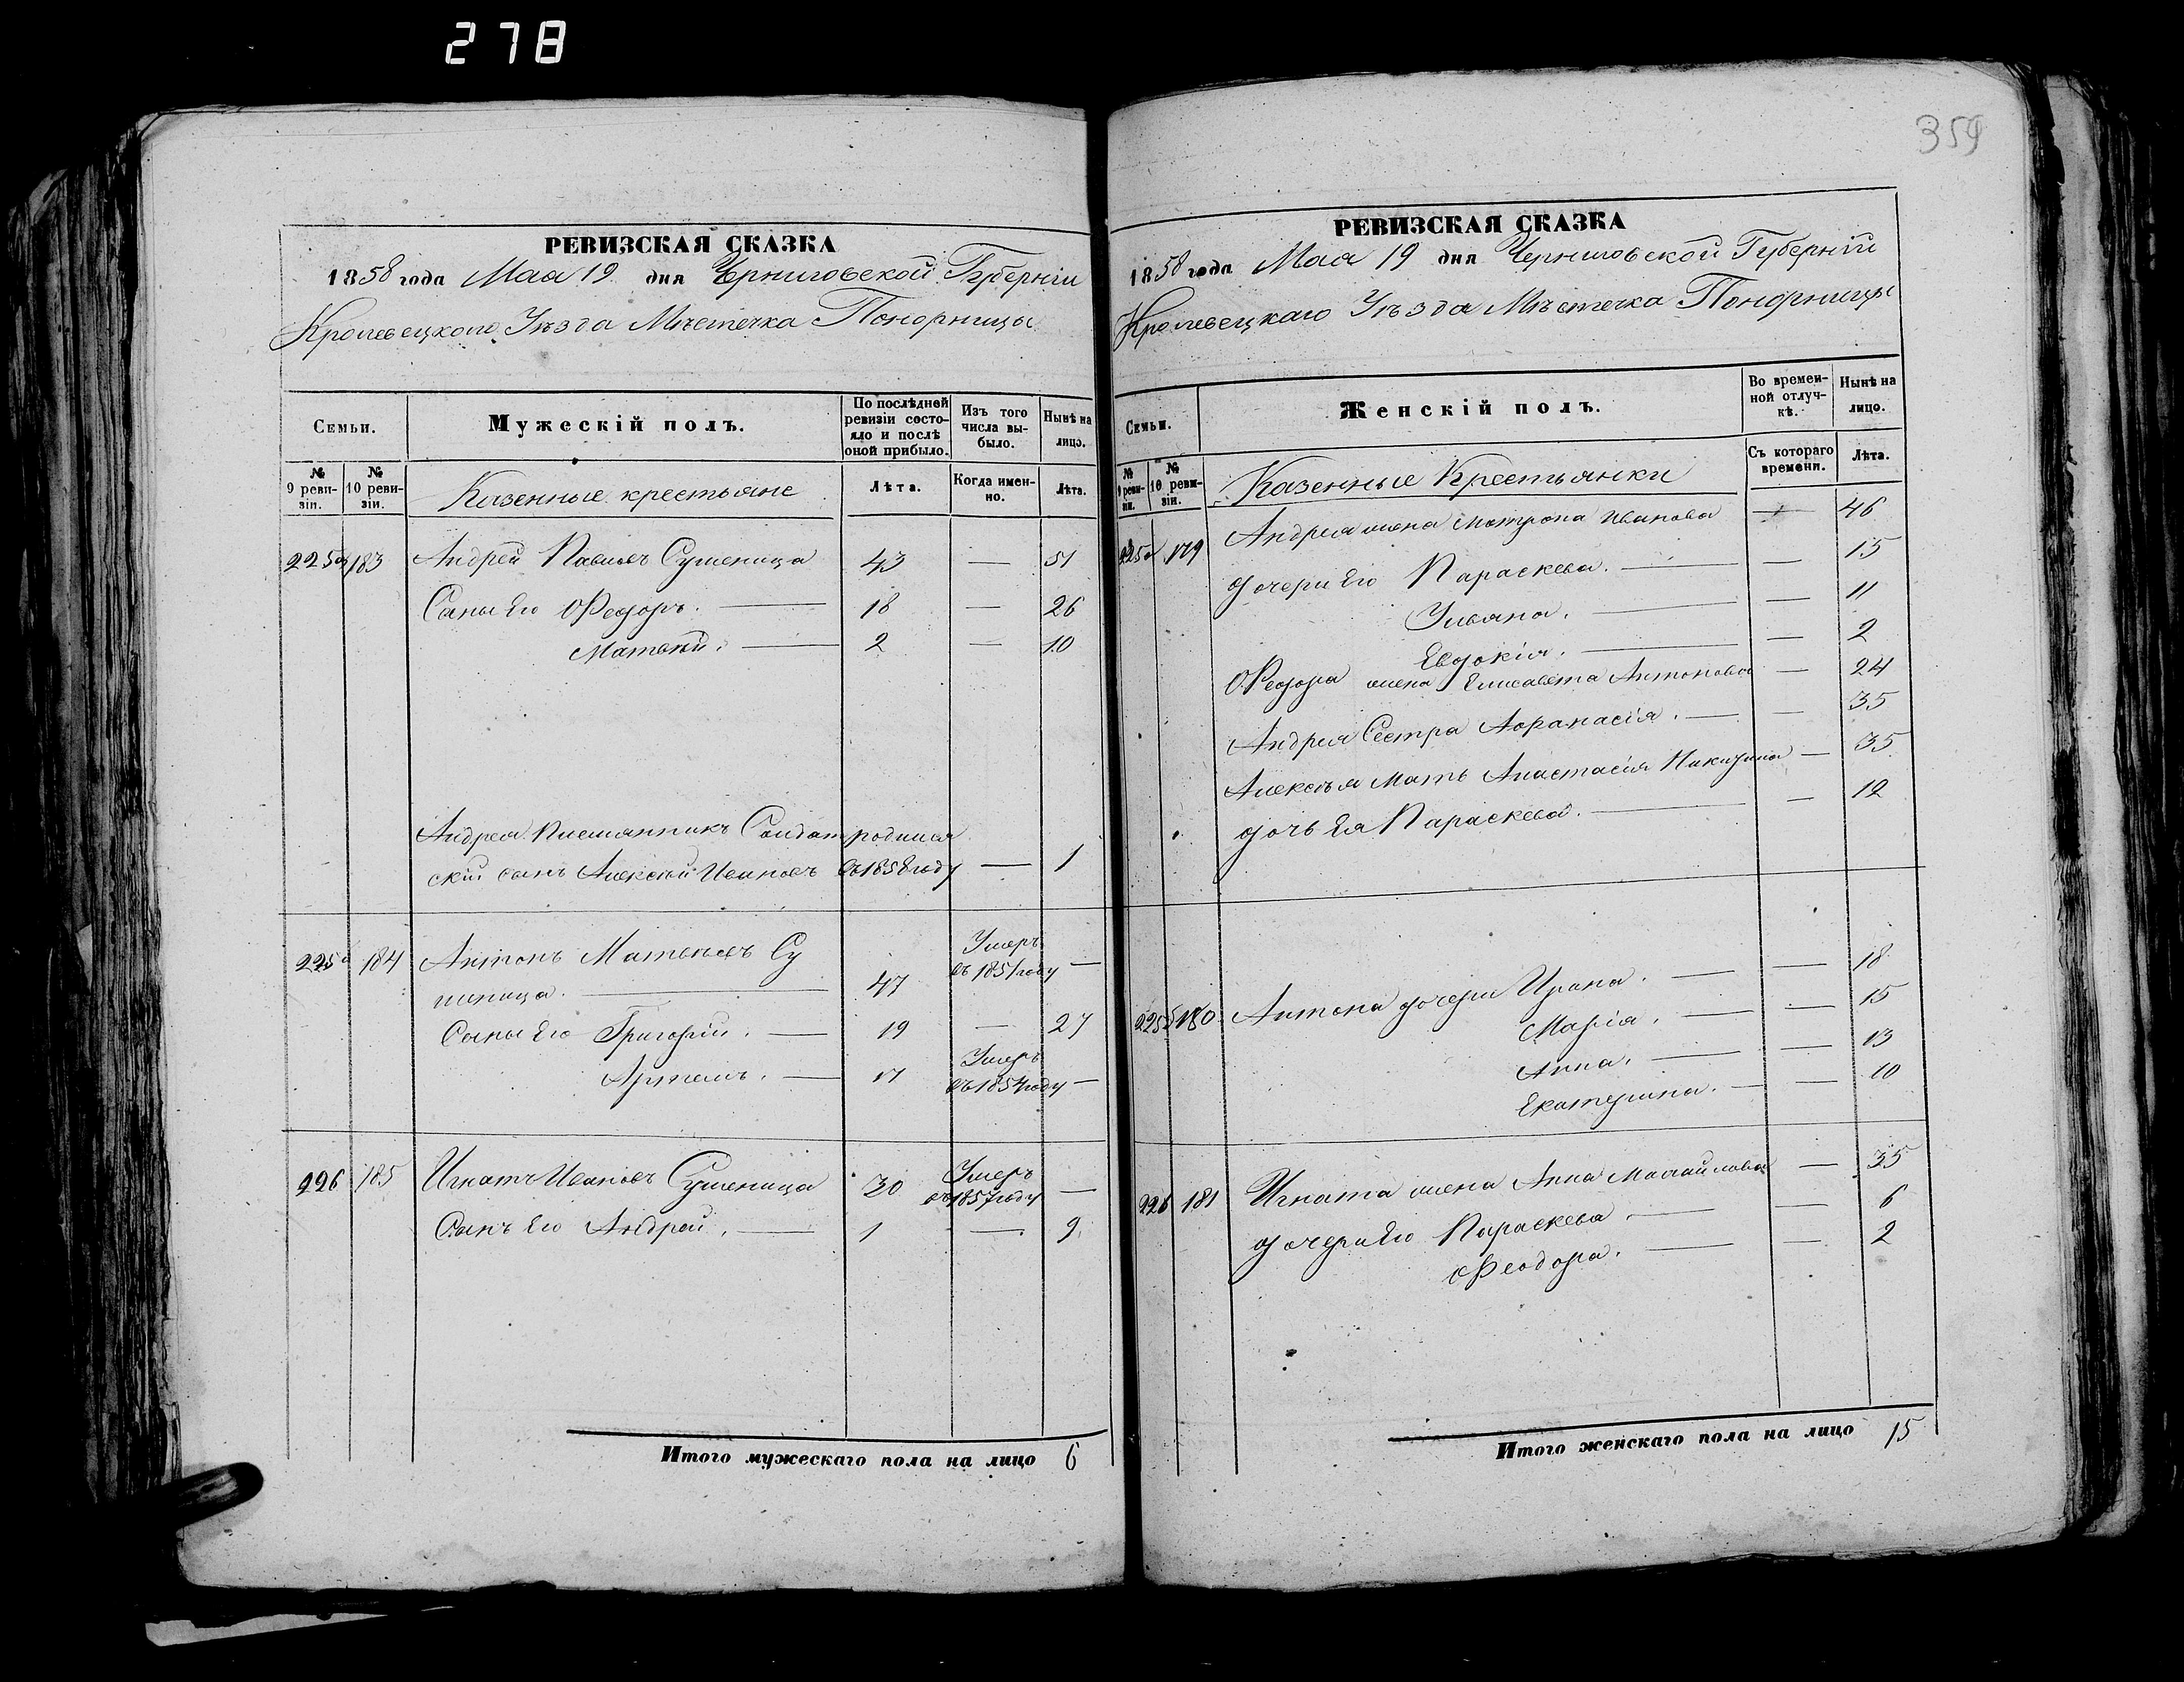 278
РЕВИЗСКАЯ СКАЗКА
1858 года Мая 19 дня Черниговской Губерніи
Кролевецкого Уѣзда Мѣстечка Понорницы
Семьи.
Мужескій полъ.
По послѣдней ревизіи состояло и послѣ оной прибыло.
Изъ того числа выбыло.
Нынѣ на лицо.
№ 9 ревизіи.
№ 10 ревизіи.
Казенные крестьяне
Лѣта.
Когда именно.
Лѣта.
225а 183 Андрей Павловъ Сушеница 43 — 51
Сыны Его Ѳедоръ. — 18 — 26
Матвѣй. — 2 — 10
Андрея Племянникъ Солдат родился
скій сынъ Алексѣй Ивановъ въ 1858 году — 1
225б 184 Антонъ Матвѣевъ Су Умеръ
шеница. — 47 въ 1851 году —
Сыны Его Григорій. — 19 — 27
Артемъ. — 17 Умеръ въ 1857 году —
226 185 Игнатъ Ивановъ Сушеница 30 Умеръ въ 1857 году —
Сынъ Его Андрей. — 1 — 9
Итого мужескаго пола на лицо 6
359
РЕВИЗСКАЯ СКАЗКА
1858 года Мая 19 дня Черниговской Губерніи
Кролевецкаго Уѣзда Мѣстечка Понорницы
Семьи.
Женскій полъ.
Во временной отлучкѣ.
Нынѣ на лицо.
№ 9 ревизіи.
№ 10 ревизіи.
Казенные Крестьянки
Съ котораго времени.
Лѣта.
225а 179 Андрея жена Матрона Иванова — 46
дочери Его Параскева. — — 15
Ульяна. — — 11
Евдокія. — — 2
Ѳедора жена Елисавета Антонова — 24
Андрея Сестра Афанасія. — — 35
Алексѣя Мать Анастасія Никитина — 35
дочь Ея Параскева. — — 12
225б 180 Антона дочери Ирина. — — 18
Марія. — — 15
Анна. — — 13
Екатерина. — — 10
226 181 Игната жена Анна Михайлова — 35
дочери Его Параскева — — 6
Феодора. — — 2
Итого женскаго пола на лицо 15